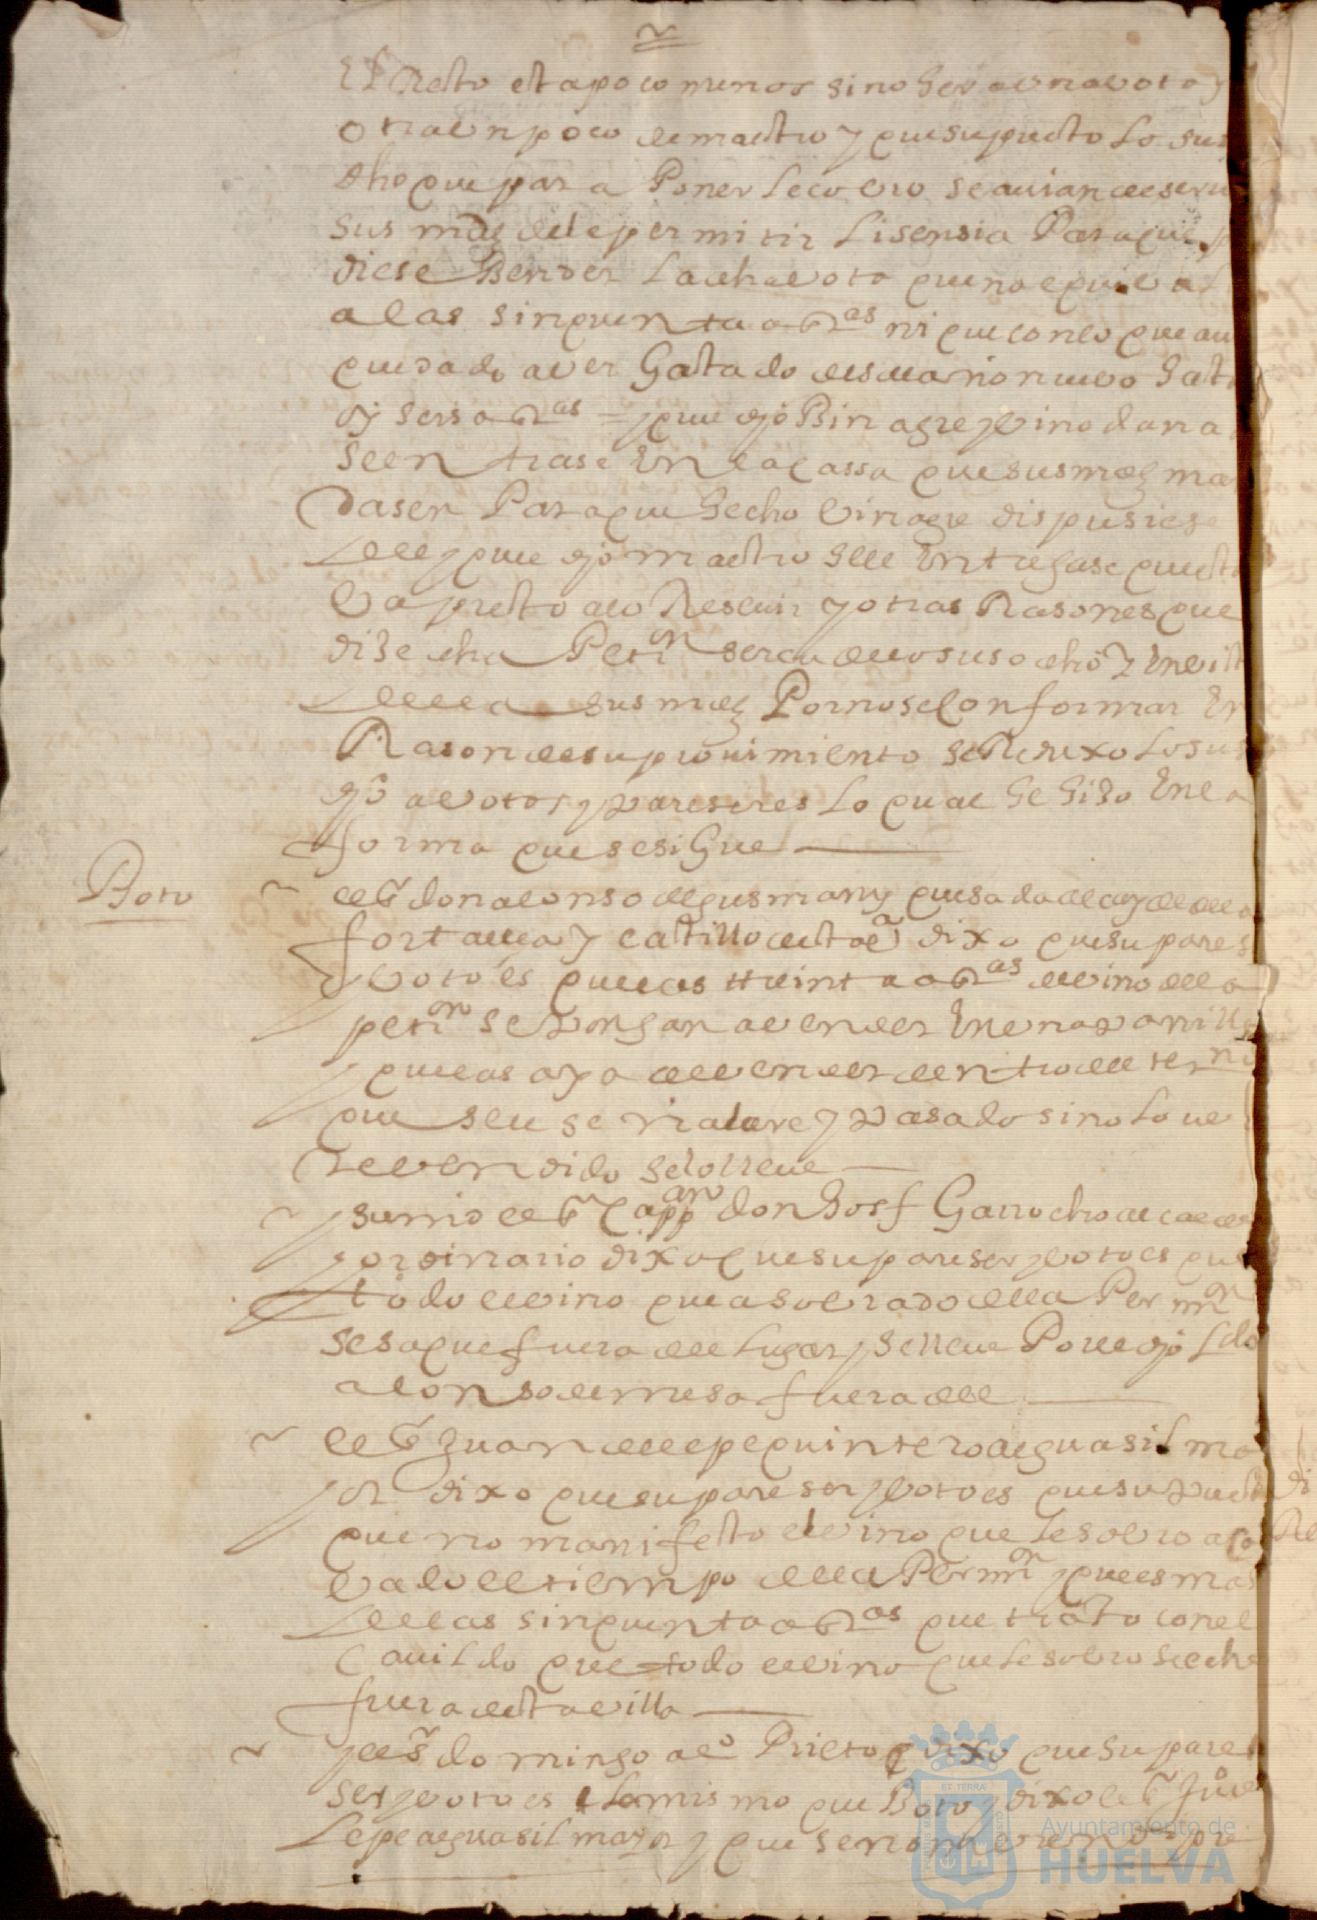 El Resto esta poco menos sino ser a una vota y
otra un poco de maestro y que supuesto lo sus
dho que para Poner lecobro se auian de seruir
sus mds de le permitir Lisensia Para que pu
diese Bender La dha vota que no equibal
a las sinquenta aRas ni que con lo que au
quedado auer Gastado desde año nueuo hast
oy seis aRas = y que dho Binagre y vino dana
se entrase En la cassa que sus mds ma
dasen Para que hecho vinagre dispusiese
del y que dho maestro se le Entregase que est
va presto a lo Resevir y otras Rasones que
dise dha Petion serca de lo suso dho y En vist
de ella sus mds Por no se Conformar En
Rason de su prouimiento se Reduxo lo sus
dho a votos y paresceres Lo qual se hiso En la
forma que se sigue
Boto
el Sr don alonso de gusman y quesada alcayde de la
fortalesa y castillo desta va dixo que su pares
y voto es que las treinta aRas de vino de la
petion se pongan a vender En Una vanilla
y que las aya de vender dentro del termi
que se le señalare y pasado si no lo ue
re vendido se lo lleue
y su md el Sr Cappan don Josf Garrocho alcalde
y ordinario dixo que su pareser y voto es que
todo el vino que a sobrado de la Permion
se saque fuera del Lugar y se lleue Por el dho Ldo
alonso de mesa fuera del
el Sr Juan de lepe quintero alguasil ma
yor dixo que su pareser y voto es que supuesto
que no manifesto el vino que le sobro aca
vado el tiempo de la Permion y que es mas
de las sinquenta aRas que trato con el
Cauildo que todo el vino que le sobro se eche
fuera desta villa
y el Sr domingo alo Prieto dixo que su pare
ser y voto es Lo mismo que Boto y dixo el Sr Juo de
Lepe alguasil mayor y que se nombre
Ayuntamiento de
HUELVA